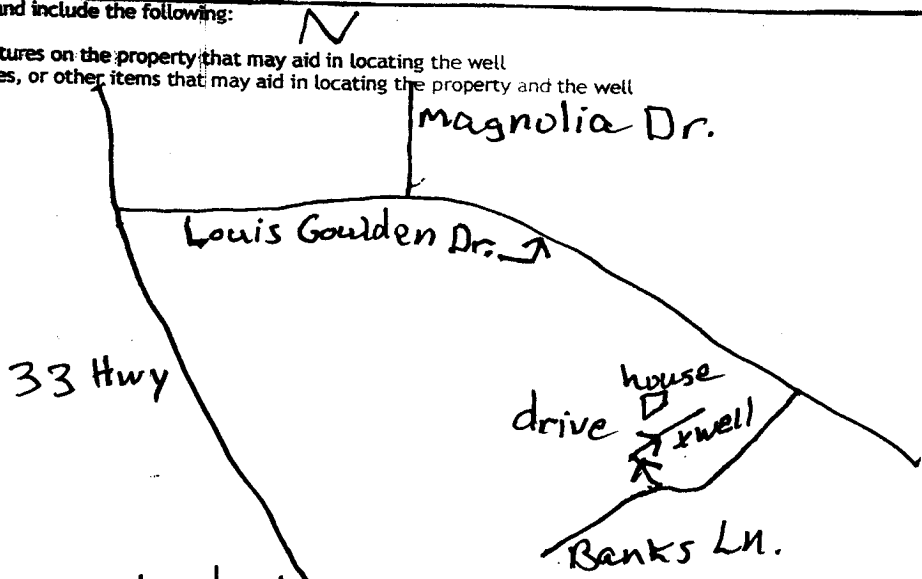 and include the following:
N
tures on the property that may aid in locating the well
es, or other items that may aid in locating the property and the well
Magnolia Dr.
Louis Goulden Dr.
33 Hwy
house
drive
x well
Banks Ln.